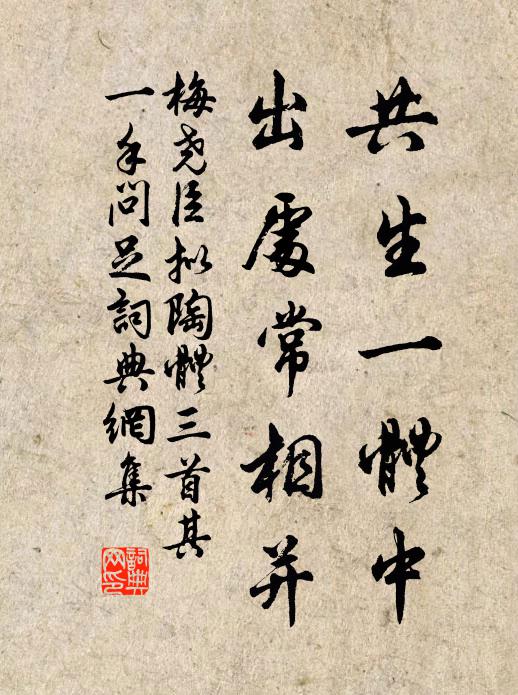 共生一體中
出處常相并
梅堯臣拟陶體三首其
一手問足詞典網集
詞典网印